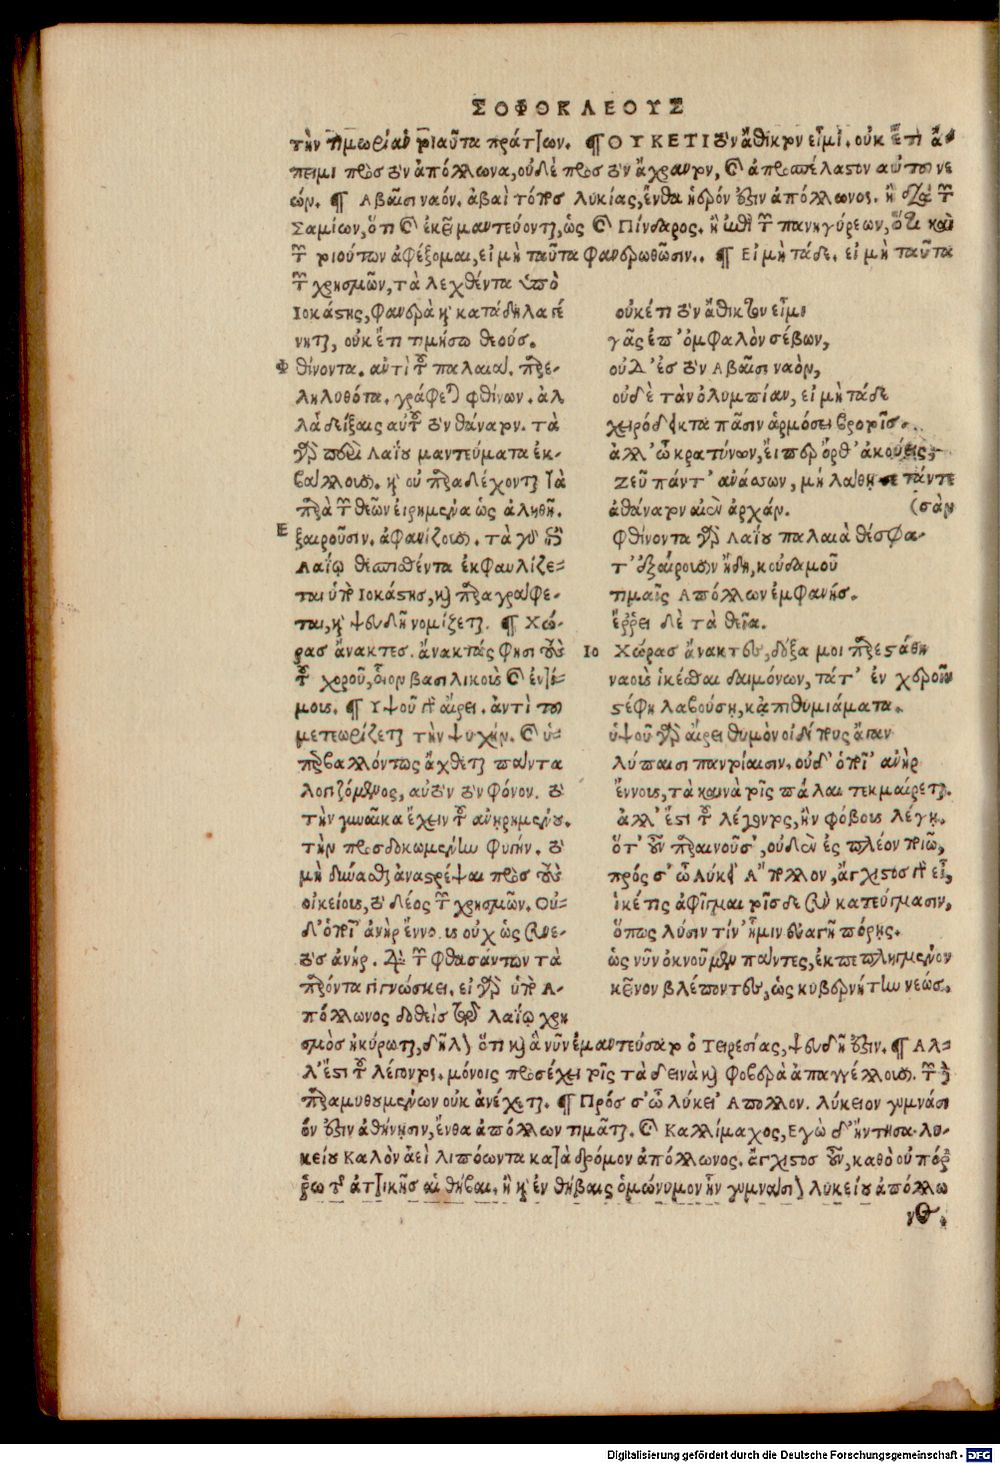 ΣΟΦΟΚΛΕΟΥΣ
τὴν τιμωρίαν τοιαῦτα πράττων. ¶ ΟΥΚΕΤΙ τὸν ἄθικτον εἶμι. οὐκ ἔτι ἄ-
πειμι πρὸς τὸν ἀπόλλωνα, οὐδὲ πρὸς τὸν ἄχραντον, καὶ ἀπροσπέλαστον αὐτοῦ νε
ών. ¶ Αβαῖσι ναόν. ἀβαὶ τόπος λυκίας, ἔνθα ἱερόν ἐστιν ἀπόλλωνος. ἢ διὰ τῶν
Σαμίων, ὅτι καὶ ἐκεῖ μαντεύονται, ὡς καὶ Πίνδαρος. ἢ ἐπὶ τῶν πανηγύρεων, ὅτι καὶ
τῶν τοιούτων ἀφέξομαι, εἰ μὴ ταῦτα φανερωθῶσιν.. ¶ Εἰ μὴ τάδε. εἰ μὴ ταῦτα
τῶν χρησμῶν, τὰ λεχθέντα ὑπὸ
Ιοκάστης, φανερὰ καὶ κατάδηλα γέ
νηται, οὐκ ἔτι τιμήσω θεούς.
Φθίνοντα. ἀντὶ τοῦ παλαιά. παρε-
ληλυθότα. γράφεται φθίνων. ἀλ
λὰ δείξαις αὐτοῦ τὸν θάνατον. τὰ
γὰρ περὶ Λαΐου μαντεύματα ἐκ-
βάλλουσι. καὶ οὐ παραδέχονται τὰ
παρὰ τῶν θεῶν εἰρημένα ὡς ἀληθῆ.
Εξαιροῦσιν. ἀφανίζουσι. τὰ γὰρ τῷ
Λαΐῳ θεσπισθέντα ἐκφαυλίζε-
ται ὑπὸ Ιοκάστης, καὶ παραγράφε-
ται, καὶ ψευδῆ νομίζεται. ¶ Χώ-
ρας ἄνακτες. ἄνακτάς φησι τοὺς
τοῦ χοροῦ, οἷον βασιλικοὺς καὶ ἐντί-
μους. ¶ Υψοῦ γὰρ αἴρει. ἀντὶ τοῦ
μετεωρίζεται τὴν ψυχήν. καὶ ὑ-
περβαλλόντως ἄχθεται πάντα
λογιζόμενος, αὐτὸν τὸν φόνον. τὸ
τὴν γυναῖκα ἔχειν τοῦ ἀνῃρημένου.
τὴν προσδοκωμένην φυγήν. τὸ
μὴ δύνασθαι ἀναστρέψαι πρὸς τοὺς
οἰκείους, τὸ δέος τῶν χρησμῶν. Οὐ-
δ' ὁποῖ' ἀνὴρ ἔννους οὐχ ὡς συνε-
τὸς ἀνήρ. διὰ τῶν φθασάντων τὰ
παρόντα γιγνώσκει. εἰ γὰρ ὑπὸ Α-
πόλλωνος δοθεὶς τῷ λαΐῳ χρη
οὐκέτι τὸν ἄθικτον εἶμι
γᾶς ἐπ' ὀμφαλὸν σέβων,
οὐδ' ἐς τὸν Αβαῖσι ναὸν,
οὐδὲ τὰν ὀλυμπίαν, εἰ μὴ τάδε
χειρόδεικτα πᾶσιν ἁρμόσει βροτοῖς.
ἀλλ' ὦ κρατύνων, εἴπερ ὄρθ' ἀκούεις,
Ζεῦ πάντ' ἀνάσσων, μὴ λάθῃ σε τάν τε
ἀθάνατον αἰὲν ἀρχάν. (σὰν
φθίνοντα γὰρ Λαΐου παλαιὰ θέσφα-
τ' ἐξαίρουσιν ἤδη, κοὐδαμοῦ
τιμαῖς Απόλλων ἐμφανής.
ἔῤῥει δὲ τὰ θεῖα.
Ιο Χώρας ἄνακτες, δόξα μοι παρεστάθη
ναοὺς ἱκέσθαι δαιμόνων, τάτ' ἐν χεροῖν
στέφη λαβούσῃ, κἀπιθυμιάματα.
ὑψοῦ γὰρ αἴρει θυμὸν οἰδίπους ἄγαν
λύπαισι παντοίαισιν. οὐδ' ὁποῖ' ἀνὴρ
ἔννους, τὰ καινὰ τοῖς πάλαι τεκμαίρεται.
ἀλλ' ἔστι τοῦ λέγοντος, ἢν φόβους λέγῃ.
ὅτ' οὖν παραινοῦσ', οὐδὲν ἐς πλέον ποιῶ,
πρός σ' ὦ Λύκει' Απολλον, ἄγχιστος γὰρ εἶ,
ἱκέτις ἀφῖγμαι τοῖσδε σὺν κατεύγμασιν,
ὅπως λύσιν τίν' ἧμιν εὐαγῆ πόρῃς.
ὡς νῦν ὀκνοῦμεν πάντες, ἐκπεπληγμένον
κεῖνον βλέποντες, ὡς κυβερνήτην νεώς.
σμὸς ἠκύρωται, δῆλον ὅτι καὶ ἃ νῦν ἐμαντεύσατο ὁ Τειρεσίας, ψευδῆ ἐστιν. ¶ Αλ-
λ' ἔστι τοῦ λέγοντος. μόνοις προσέχει τοῖς τὰ δεινὰ καὶ φοβερὰ ἀπαγγέλλουσι. τῶν δὲ
παραμυθουμένων οὐκ ἀνέχεται. ¶ Πρός σ' ὦ λύκει' Απολλον. λύκειον γυμνάσι
όν ἐστιν ἀθήνησιν, ἔνθα ἀπόλλων τιμᾶται. καὶ Καλλίμαχος, Εγὼ δ' ἤντησα λυ-
κείου Καλὸν ἀεὶ λιπόωντα κατὰ δρόμον ἀπόλλωνος. ἄγχιστος οὖν, καθὸ οὐ πόῤ
ῥω τῆς ἀττικῆς αἱ θῆβαι. ἢ καὶ ἐν θήβαις ὁμώνυμον ἦν γυμνάσιον λυκείου ἀπόλλω
νος.
Digitalisierung gefördert durch die Deutsche Forschungsgemeinschaft - DFG